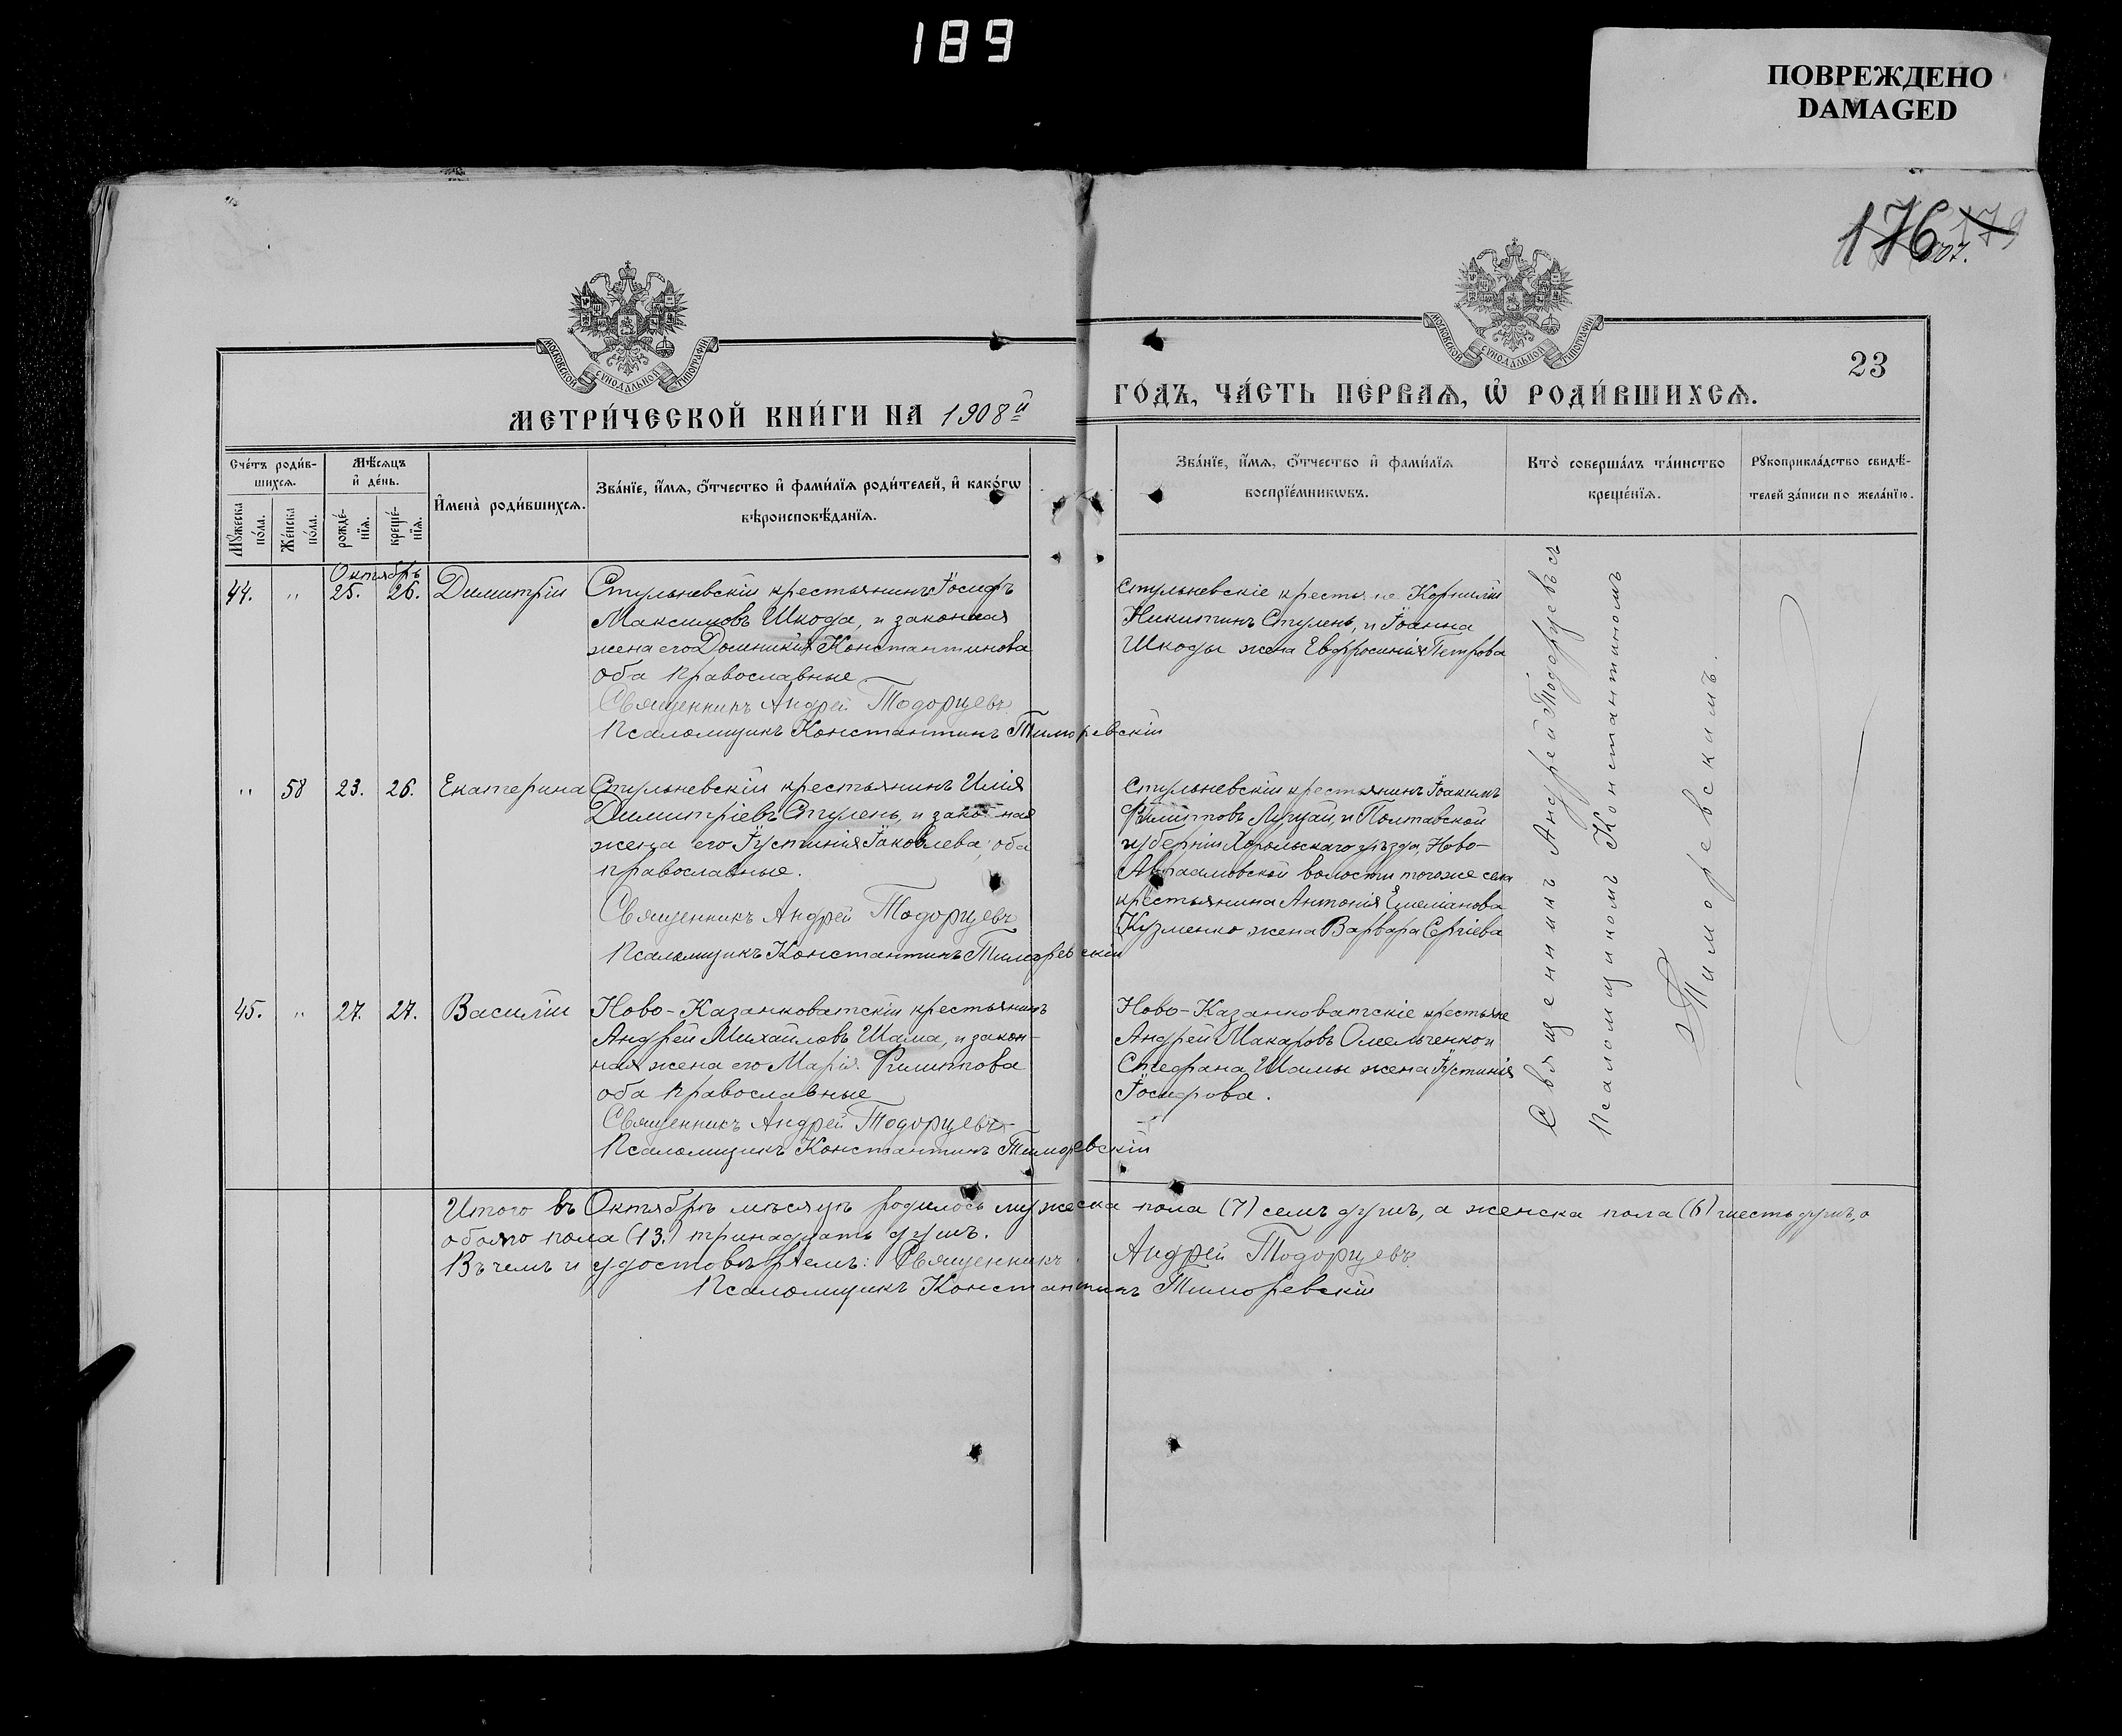 189
ПОВРЕЖДЕНО
DAMAGED
176 179
МОСКОВСКОЙ СУНОДАЛЬНОЙ ТИПОГРАФІИ
МОСКОВСКОЙ СУНОДАЛЬНОЙ ТИПОГРАФІИ
23
МЕТРИ́ЧЕСКОЙ КНИ́ГИ НА 1908й
ГО́ДЪ, ЧА́СТЬ ПЕ́РВАЯ, Ѡ РОДИ́ВШИХСЯ.
Сче́тъ роди́в-
шихся.
Мѣ́сяцъ
и҆ де́нь.
Мꙋ́жеска
по́ла.
Же́нска
по́ла.
рожде́-
нїя.
креще́-
нїя.
И҆мена̀ роди́вшихся.
Зва́нїе, и҆́мя, ѻ҆́тчество и҆ фами́лїя роди́телей, и҆ како́гѡ
вѣроисповѣ́данїя.
Зва́нїе, и҆́мя, ѻ҆́тчество и҆ фами́лїя
воспрїе́мникѡвъ.
Кто̀ соверша́лъ та́инство
креще́нїя.
Рꙋкоприкла́дство свидѣ́-
телей за́писи по жела́нїю.
Октябрь
44. " 25. 26. Димитрій
Стульневскій крестьянинъ Іосифъ
Максимовъ Шкода, и законная
жена его Домникія Константинова
оба православные
Священникъ Андрей Тодорцевъ
Псаломщикъ Константинъ Тиморевскій
Стульневскіе крестьяне Корнилій
Никитинъ Ступень, и Іоанна
Шкоды жена Евфросинія Петрова
" 58 23. 26. Екатерина
Стульневскій крестьянинъ Илія
Димитріевъ Ступень, и законная
жена его Іустинія Іаковлева, оба
православные.
Священникъ Андрей Тодорцевъ
Псаломщикъ Константинъ Тиморевскій
Стульневскій крестьянинъ Іоакимъ
Филипповъ и Полтавской
губерніи Хорольскаго уѣзда, Ново-
Аврамовской волости того же села
крестьянина Антонія Емеліанова
Кузменко жена Варвара Сергіева
45. " 27. 27. Василій
Ново-Казанковатскій крестьянинъ
Андрей Михайловъ Шама, и закон-
ная жена его Марія Филиппова
оба православные
Священникъ Андрей Тодорцевъ
Псаломщикъ Константинъ Тиморевскій
Ново-Казанковатскіе крестьяне
Андрей Макаровъ Омельченко, и
Стефана Шамы жена Іустинія
Іосифова.
Священникъ Андрей Тодорцевъ съ
Псаломщикомъ Константиномъ
Тиморевскимъ.
Итого въ Октябрѣ мѣсяцѣ родилось мужеска пола (7) семь душъ, а женска пола (6) шесть душъ, а
обоего пола (13.) тринадцать душъ.
Въ чемъ и удостовѣряемъ: Священникъ Андрей Тодорцевъ
Псаломщикъ Константинъ Тиморевскій